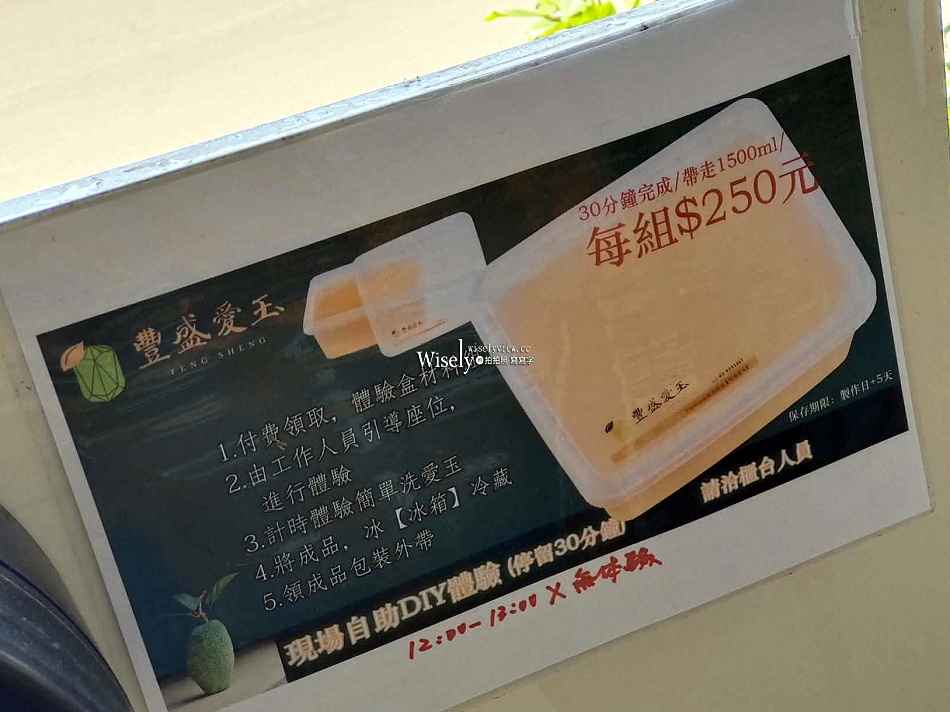 30分鐘完成/帶走1500ml/
每組$250元
豐盛愛玉
FENG SHENG
豐盛愛玉
Wisely
wiselyview.cc
拍拍照.寫寫字
1.付費領取，體驗盒材料
2.由工作人員引導座位，
進行體驗
3.計時體驗簡單洗愛玉
4.將成品，冰【冰箱】冷藏
5.領成品包裝外帶
豐盛愛玉
保存期限：製作日+5天
請洽櫃台人員
現場自助DIY體驗 (停留30分鐘)
12:00-13:00 X 無体驗